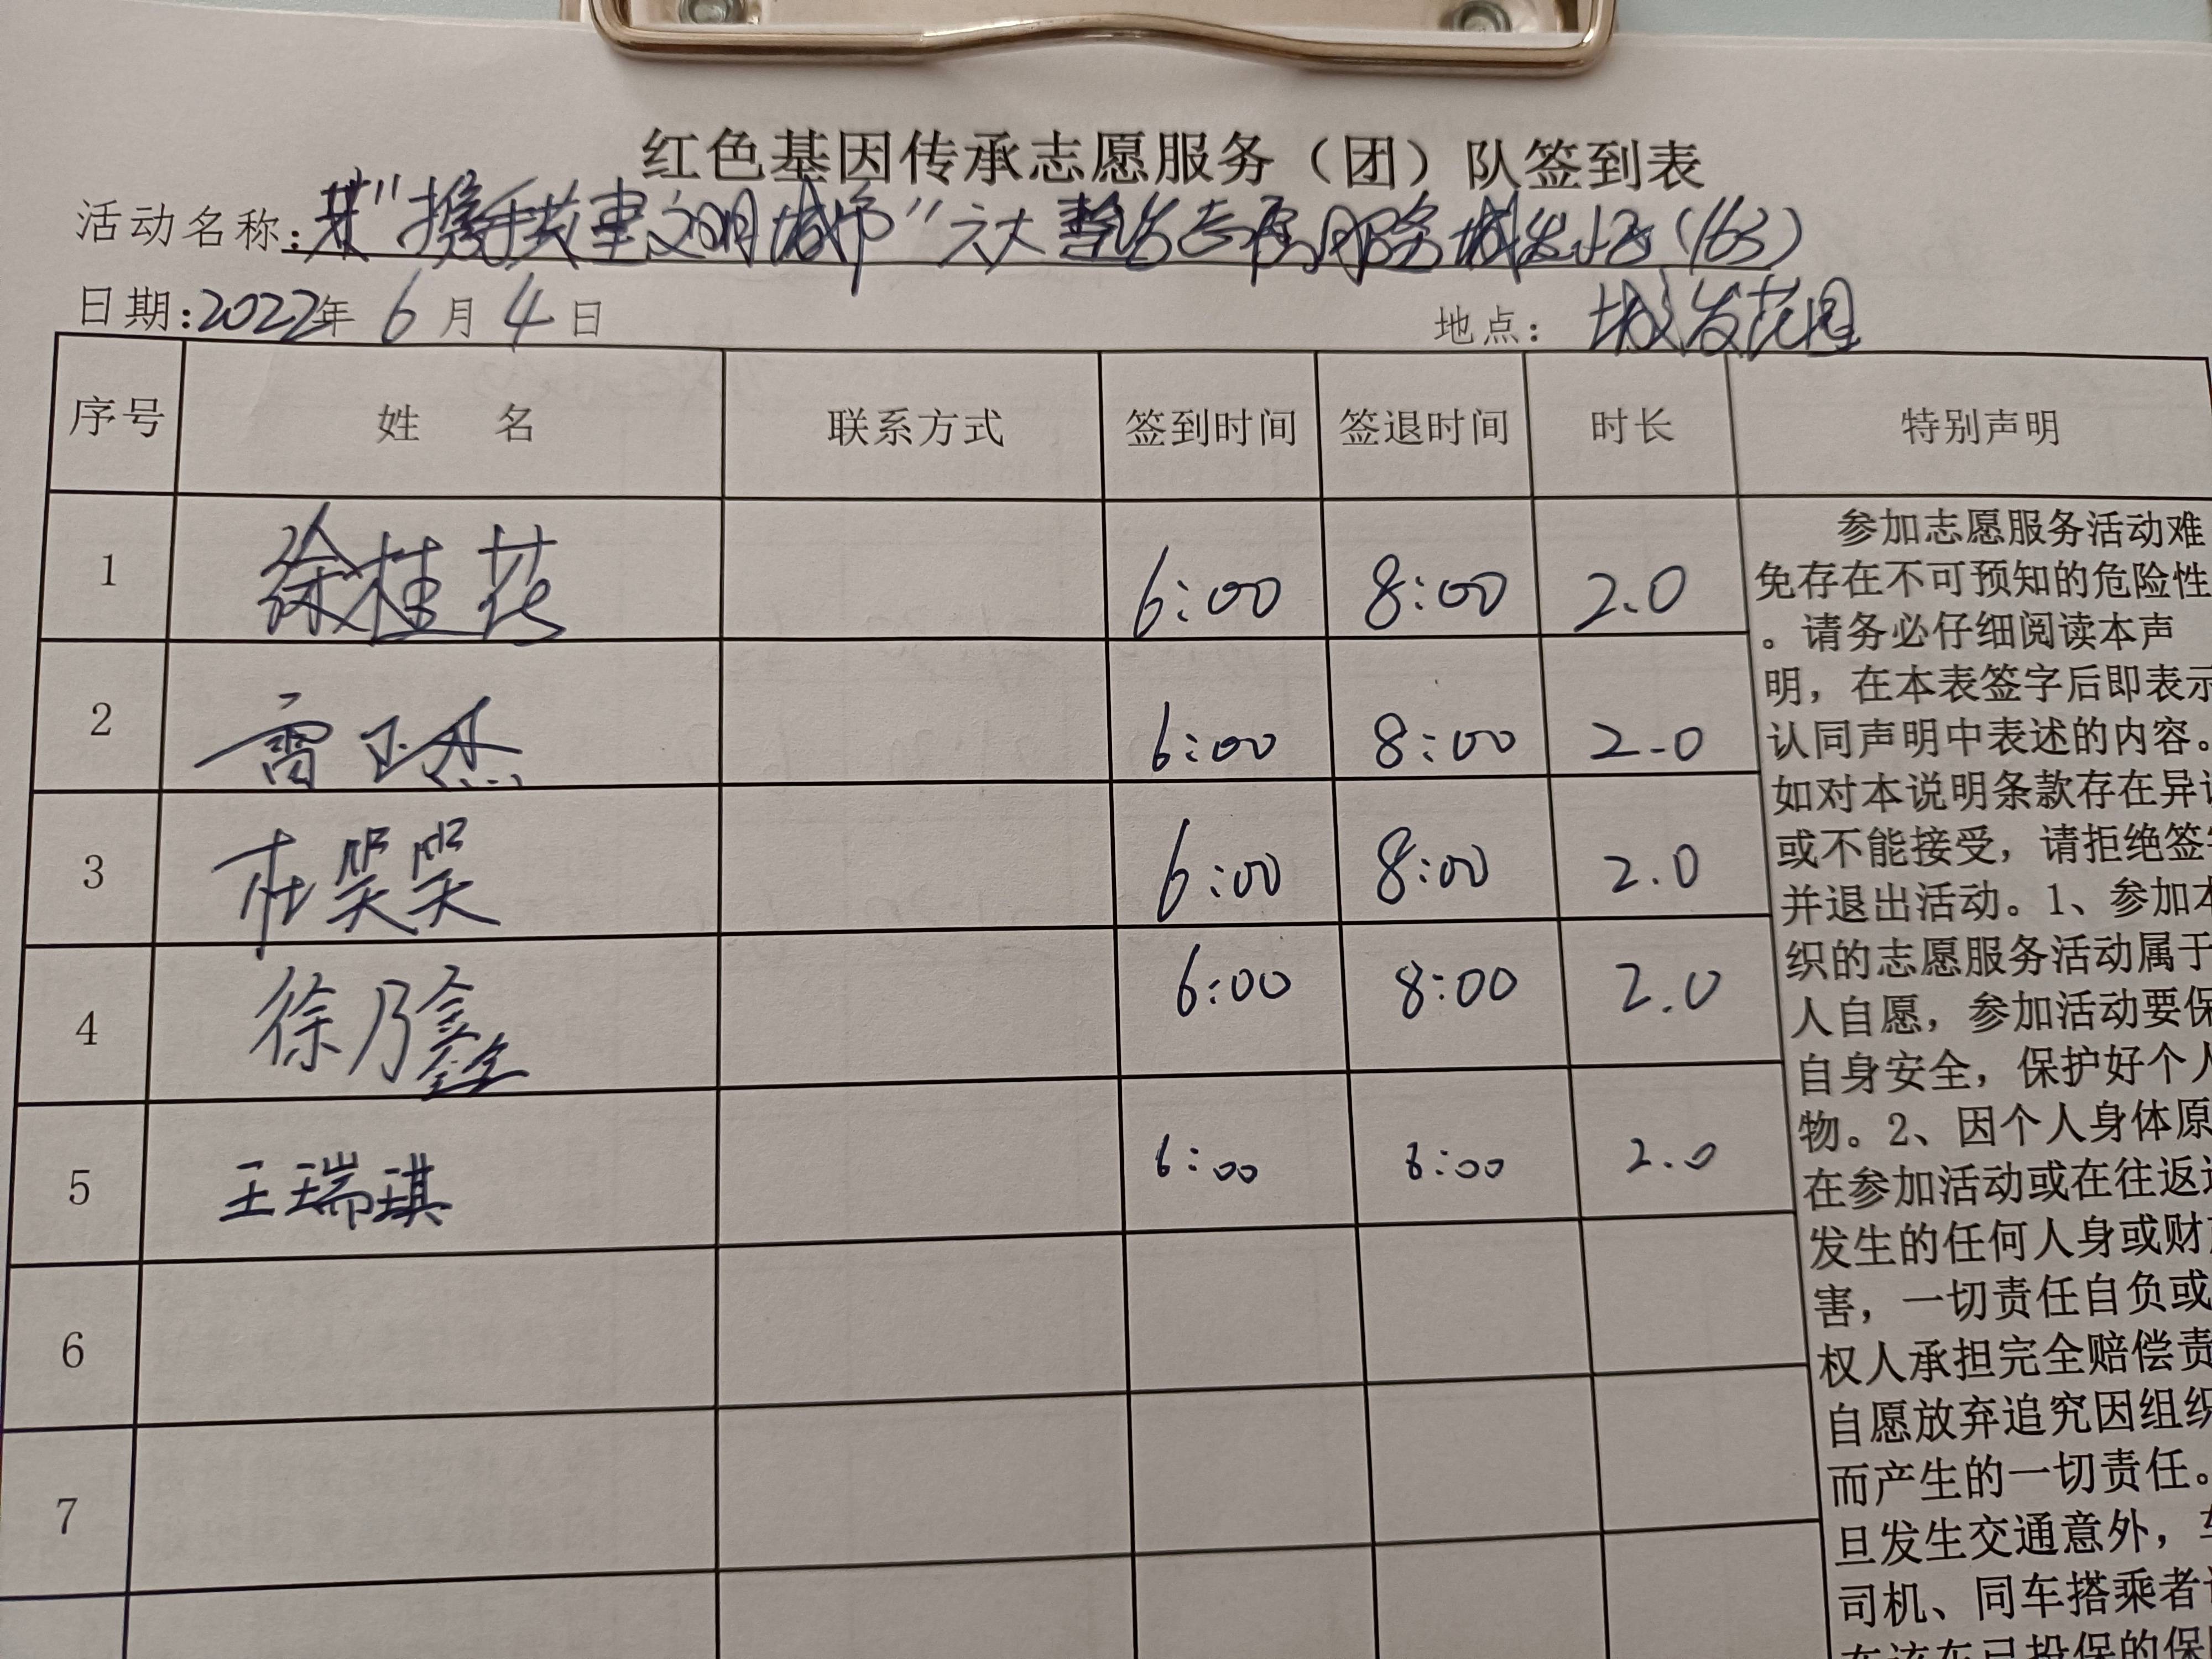 红色基因传承志愿服务（团）队签到表
活动名称："携手共建文明城市"六大整治志愿服务城发小区(163)
日期：2022年 6 月 4 日 地点：城发花园
序号 姓 名 联系方式 签到时间 签退时间 时长 特别声明
1 徐桂花 6:00 8:00 2.0
2 雷正杰 6:00 8:00 2.0
3 杜笑笑 6:00 8:00 2.0
4 徐乃鑫 6:00 8:00 2.0
5 王瑞琪 6:00 8:00 2.0
6
7
参加志愿服务活动难
免存在不可预知的危险性
。请务必仔细阅读本声
明，在本表签字后即表示
认同声明中表述的内容。
如对本说明条款存在异
或不能接受，请拒绝签
并退出活动。1、参加本
织的志愿服务活动属于
人自愿，参加活动要保
自身安全，保护好个人
物。2、因个人身体原
在参加活动或在往返
发生的任何人身或财
害，一切责任自负或
权人承担完全赔偿责
自愿放弃追究因组织
而产生的一切责任。
旦发生交通意外，
司机、同车搭乘者
在该车已投保的保